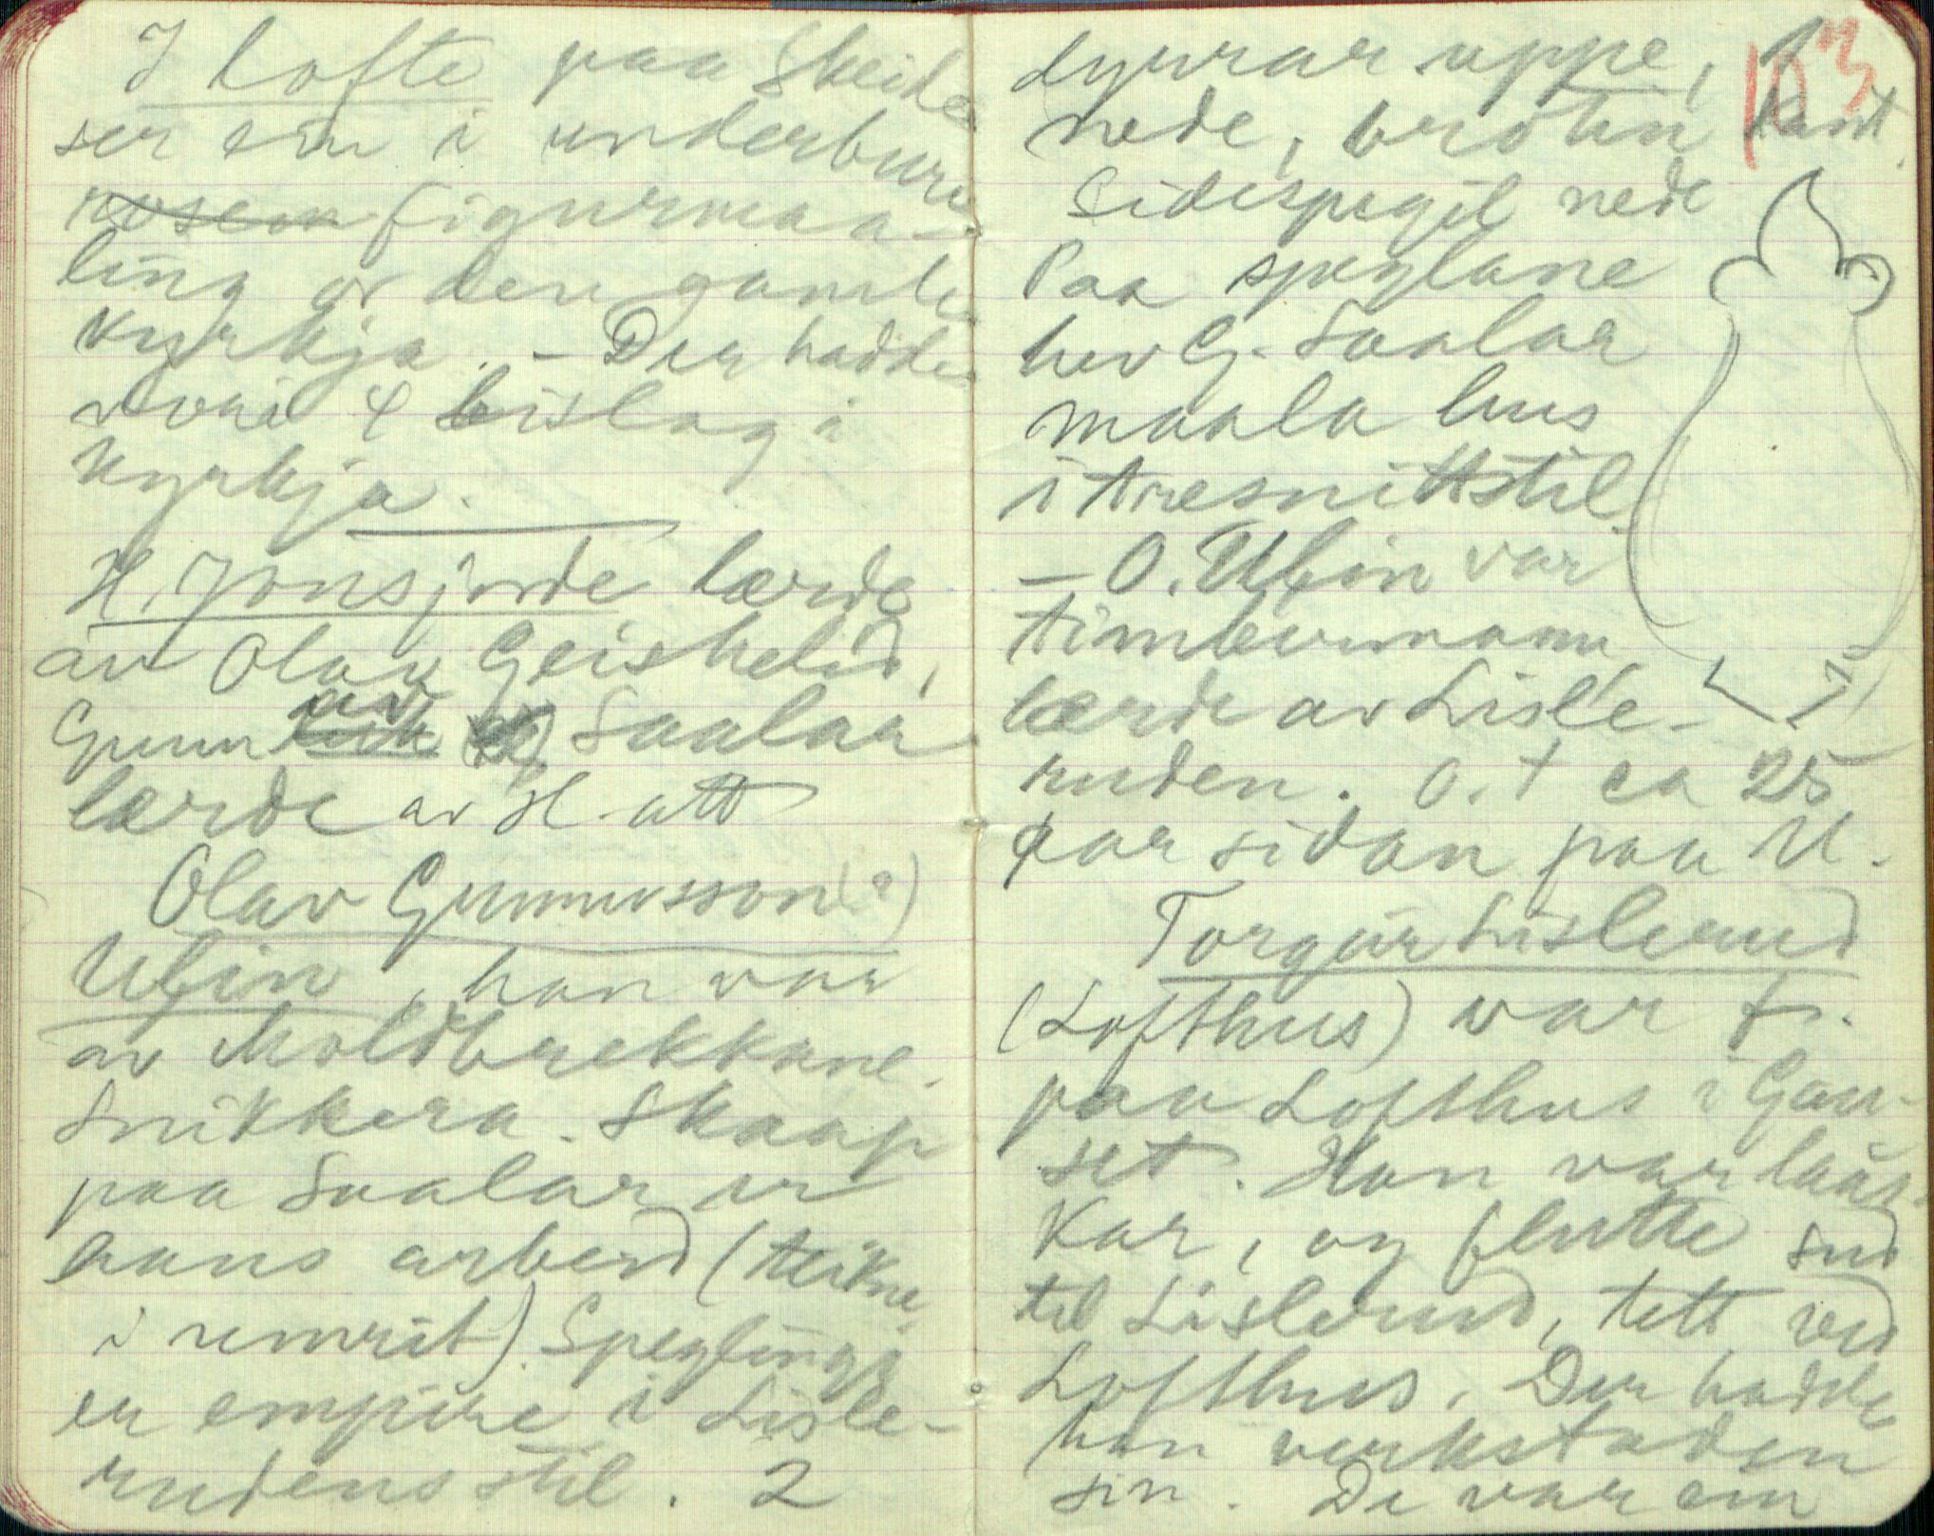 I Lofte paa Skeide
ser ein i underbure
rosem figurmaa-
ling or den gamle
kyrkja. - Der hadde
vori 4 bislag i
kyrkja.
H. Jonsjorde lærde
av Olav Geiskelid,
Gunnar Saalaa
lærde av H. att
Olav Gunnursson (?)
Ufin, han var
av Moldbrekkane.
Snikkera. Skaap
paa Saalar er
hans arbeid (teikne
i umrit). Speglinga
er empire i Lisle-
rudens stil. 2
dyrrar uppe, 1
nede, broten kant.
Sidespegil nede
Paa speglane
hev G. Saalaa
maala hus
i tresnittstil.
- O. Ufin var
timbermann
lærde av Lisle-
ruden. O. † ca 25
aar sidan paa U.
Torgeir Lislerud
(Lofthus) var f.
paa Lofthus i Gau-
set. Han var laus-
kar, og flutte sud
til Lislerud, tett ved
Lofthus. Der hadde
han verkstaden
sin. De var ein
103